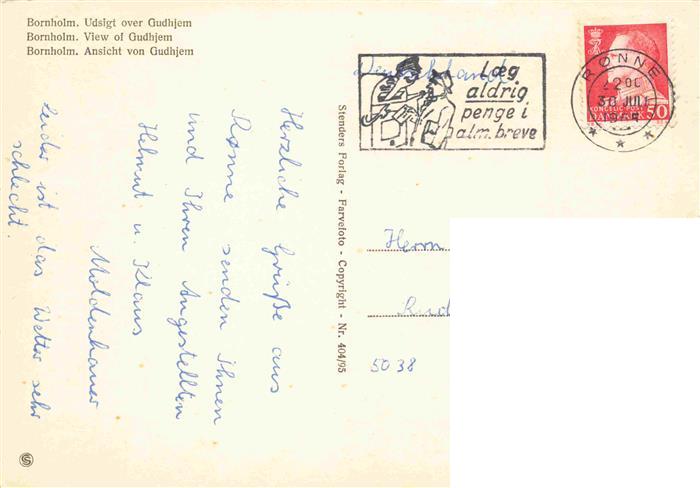 Bornholm. Udsigt over Gudhjem
Bornholm. View of Gudhjem
Bornholm. Ansicht von Gudhjem
Herzliche Grüße aus
Rønne senden Ihnen
und Ihren Angestellten
Helmut u. Klaus
Moldenhauer
Leider ist das Wetter sehr
schlecht.
Stenders Forlag - Farvefoto - Copyright - Nr. 404/95
Deutschland
Læg
aldrig
penge i
alm. breve
RØNNE
30 JULI
KONGELIG POST
DANMARK 50
Herrn
5038